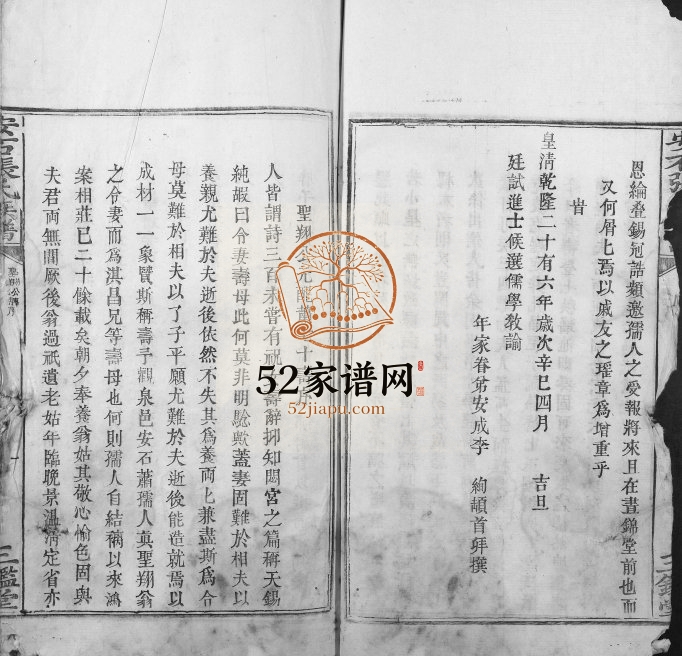 恩綸叠錫冠誥頻邀孺人之受報將來且在晝錦堂前也而
又何屑七焉以戚友之瑤章爲增重乎
旹
皇清乾隆二十有六年歲次辛巳四月 吉旦
廷試進士候選儒學教諭
年家眷弟安成李 絢頡首拜撰
聖翔
人皆謂詩三百未嘗有祝
壽辭抑知閟宮之篇稱天錫
純嘏曰令妻壽母此何莫非明騐歟蓋妻固難於相夫以
養親尤難於夫逝後依然不失其爲養而七兼盡斯爲合
母莫難於相夫以了子平願尤難於夫逝後能造就焉以
成材一一象賢斯稱壽予觀泉邑安石蕭孺人真聖翔翁
之令妻而爲淇昌兄等壽母也何則孺人自結褵以來鴻
案相莊已二十餘載矣朝夕奉養翁姑其敬心愉色固與
夫君両無間厥後翁過祇遺老姑年臨晚景温凊定省亦
安石張氏族譜
三鑑堂
52家谱网
52jiapu.com